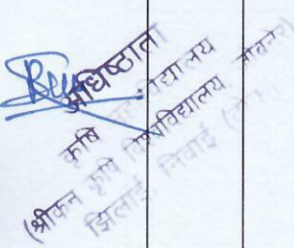 अधिष्ठाता
कृषि महाविद्यालय
(श्रीकर्ण कृषि विश्वविद्यालय जोबनेर)
झिलाई निवाई